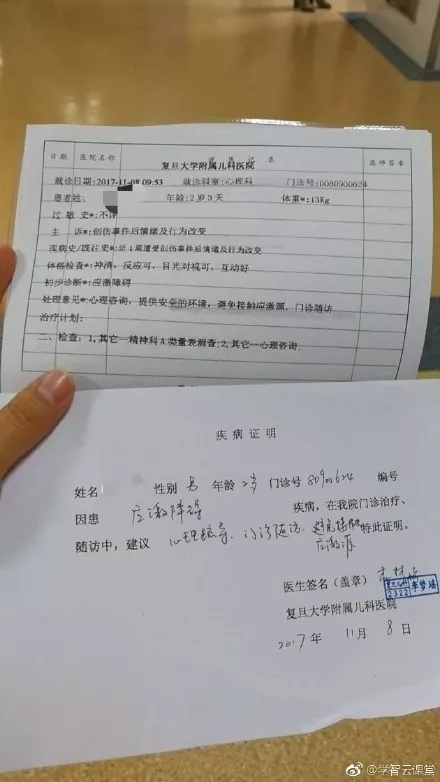 日期 医院名称 医师签章
复旦大学附属儿科医院
就诊日期:2017-11-08 09:53 就诊科室:心理科 门诊号:0080900624
患者姓 年龄:2岁3天 体重*:13Kg
过敏史*:不详
主 诉*:创伤事件后情绪及行为改变
现病史/既往史*:近1周遭受创伤事件后情绪及行为改变
体格检查*:神清,反应可,目光对视可,互动好
初步诊断*:应激障碍
处理意见*:心理咨询,提供安全的环境,避免接触应激源,门诊随访
治疗计划:
二、检查:1,其它--精神科A类量表测查;2,其它--心理咨询.
疾病证明
姓名 性别 男 年龄 2岁 门诊号 80900624 编号
因患 应激障碍 疾病,在我院门诊治疗、
随访中,建议 心理疏导、门诊随访、避免接触 特此证明。
应激源
医生签名(盖章)
2322
复旦大学附属儿科医院
2017年 11月 8日
@学智云课堂